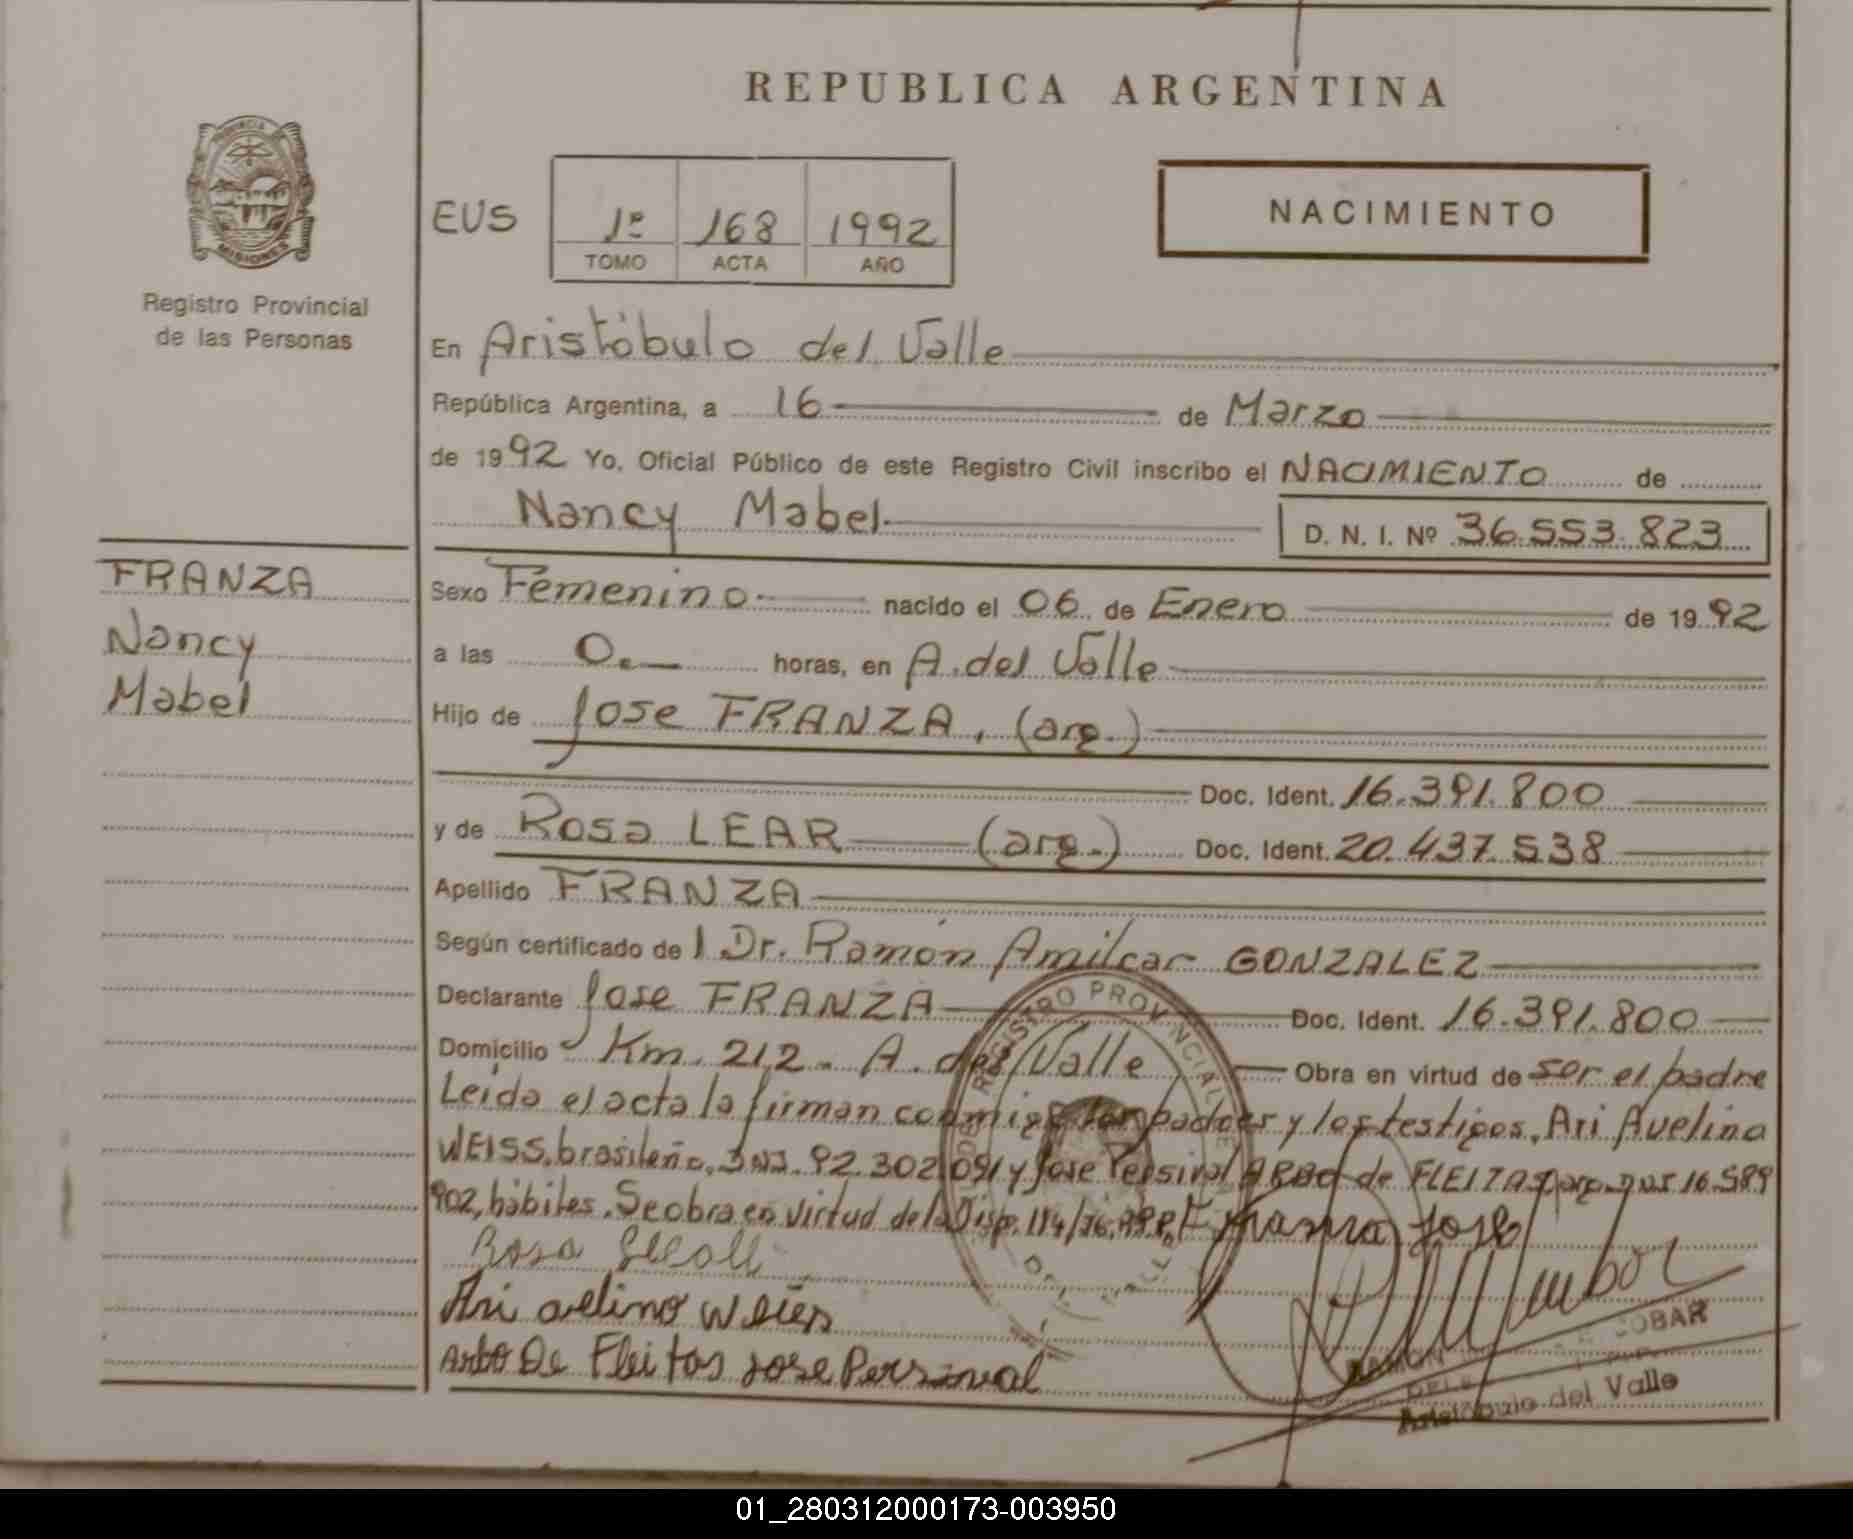 REPUBLICA ARGENTINA
PROVINCIA DE
MISIONES
Registro Provincial
de las Personas
EUS
1º 168 1992
TOMO ACTA AÑO
NACIMIENTO
En Aristóbulo del Valle
República Argentina, a 16 de Marzo
de 1992 Yo, Oficial Público de este Registro Civil inscribo el NACIMIENTO de
Nancy Mabel D. N. I. Nº 36.553.823
FRANZA
Nancy
Mabel
Sexo Femenino nacido el 06 de Enero de 1992
a las 0. horas, en A. del Valle
Hijo de Jose FRANZA, (arg.)
Doc. Ident. 16.391.800
y de Rosa LEAR (arg.) Doc. Ident. 20.437.538
Apellido FRANZA
Según certificado de l Dr. Ramón Amilcar GONZALEZ
Declarante Jose FRANZA Doc. Ident. 16.391.800
Domicilio Km. 212 - A. del Valle Obra en virtud de ser el padre
Leida el acta la firman conmigo los padres y los testigos, Ari Avelino
WEISS, brasileño, DNI. 92.302.091 y Jose Persival ARBO de FLEITAS, arg. DNI 16.589
902, hábiles. Se obra en virtud de la Disp. 114/76. RPP. Franza Jose
Rosa
Ari avelino Weiss
Arbo De Fleitas Jose Persival
REGISTRO PROVINCIAL DE
RAMON ESCOBAR
Aristóbulo del Valle
01_280312000173-003950